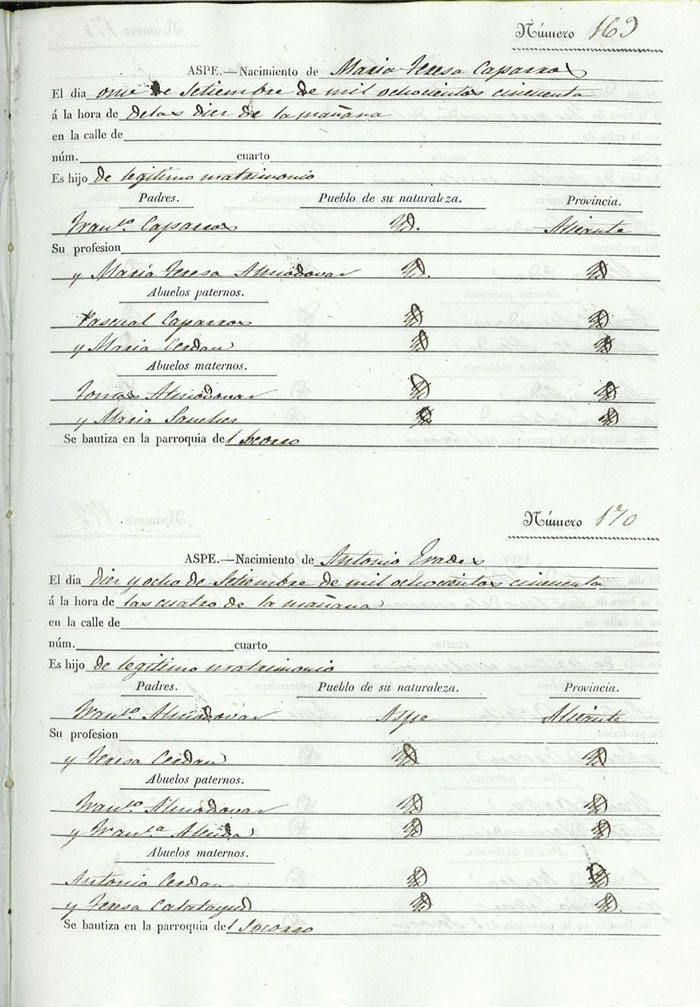 Número 169
ASPE.—Nacimiento de Maria Teresa Caparros
El dia once de Setiembre de mil ochocientos cincuenta
á la hora de delas diez de la mañana
en la calle de
núm. cuarto
Es hijo de legitimo matrimonio
Padres. Pueblo de su naturaleza. Provincia.
Franco. Caparros Yd. Alicante
Su profesion
y Maria Teresa Almodovar Yd. Yd
Abuelos paternos.
Pascual Caparros Yd Yd
y Maria Cerdan Yd Yd
Abuelos maternos.
Tomas Almodovar Yd Yd
y Maria Sanchez Yd Yd
Se bautiza en la parroquia del Socorro
Número 170
ASPE.—Nacimiento de Antonio
El dia diez y ocho de Setiembre de mil ochocientos cincuenta
á la hora de las cuatro de la mañana
en la calle de
núm. cuarto
Es hijo de legitimo matrimonio
Padres. Pueblo de su naturaleza. Provincia.
Franco. Almodovar Aspe Alicante
Su profesion
y Teresa Cerdan Yd Yd
Abuelos paternos.
Franco. Almodovar Yd Yd
y Franca. Yd Yd
Abuelos maternos.
Antonio Cerdan Yd Yd
y Teresa Calatayud Yd Yd.
Se bautiza en la parroquia del Socorro